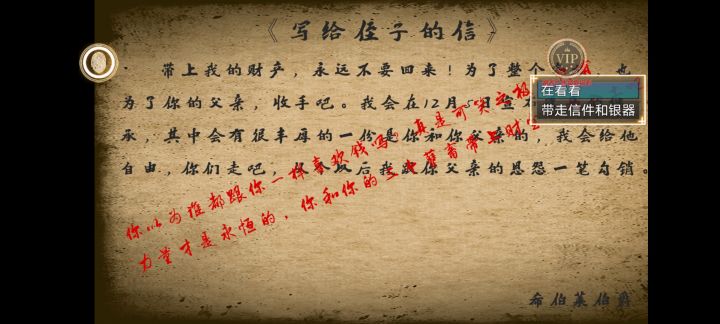 《写给侄子的信》
带上我的财产，永远不要回来！为了整个 也
为了你的父亲，收手吧。我会在12月5日宣
承，其中会有很丰厚的一份是你和你父亲的，我会给他
自由，你们走吧，从今以后我跟你父亲的恩怨一笔勾销。
你以为谁都跟你一样喜欢钱吗？真是可笑
力量才是永恒的，你和你的 带 财
希伯莱伯爵
VIP
在看看
带走信件和银器